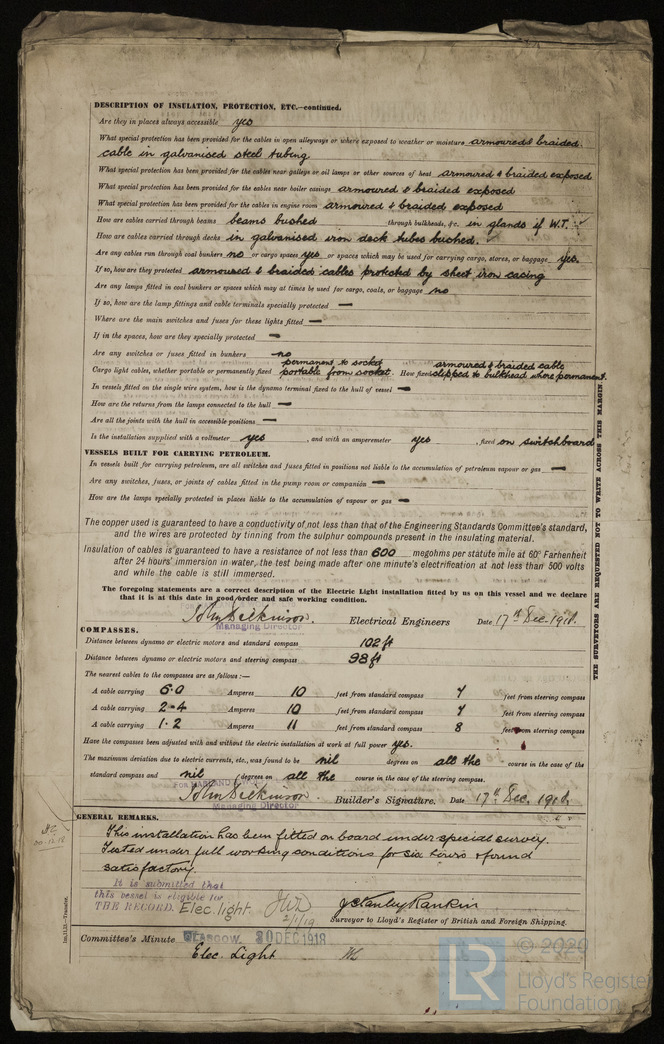 DESCRIPTION OF INSULATION, PROTECTION, ETC.—continued.
Are they in places always accessible yes
What special protection has been provided for the cables in open alleyways or where exposed to weather or moisture armoured & braided
cable in galvanised steel tubing
What special protection has been provided for the cables near galleys or oil lamps or other sources of heat armoured & braided exposed
What special protection has been provided for the cables near boiler casings armoured & braided exposed
What special protection has been provided for the cables in engine room armoured & braided exposed
How are cables carried through beams beams bushed through bulkheads, &c. in glands if W.T.
How are cables carried through decks in galvanised iron deck tubes bushed.
Are any cables run through coal bunkers no or cargo spaces yes or spaces which may be used for carrying cargo, stores, or baggage yes.
If so, how are they protected armoured & braided cables protected by sheet iron casing
Are any lamps fitted in coal bunkers or spaces which may at times be used for cargo, coals, or baggage no
If so, how are the lamp fittings and cable terminals specially protected —
Where are the main switches and fuses for these lights fitted —
If in the spaces, how are they specially protected —
Are any switches or fuses fitted in bunkers no
permanent to socket armoured & braided cable
Cargo light cables, whether portable or permanently fixed portable from socket. How fixed clipped to bulkhead where permanent.
In vessels fitted on the single wire system, how is the dynamo terminal fixed to the hull of vessel —
How are the returns from the lamps connected to the hull —
Are all the joints with the hull in accessible positions —
Is the installation supplied with a voltmeter yes , and with an amperemeter yes , fixed on switchboard
VESSELS BUILT FOR CARRYING PETROLEUM.
In vessels built for carrying petroleum, are all switches and fuses fitted in positions not liable to the accumulation of petroleum vapour or gas —
Are any switches, fuses, or joints of cables fitted in the pump room or companion —
How are the lamps specially protected in places liable to the accumulation of vapour or gas —
THE SURVEYORS ARE REQUESTED NOT TO WRITE ACROSS THIS MARGIN
The copper used is guaranteed to have a conductivity of not less than that of the Engineering Standards Committee's standard,
and the wires are protected by tinning from the sulphur compounds present in the insulating material.
Insulation of cables is guaranteed to have a resistance of not less than 600 megohms per statute mile at 60° Farhenheit
after 24 hours' immersion in water, the test being made after one minute's electrification at not less than 500 volts
and while the cable is still immersed.
The foregoing statements are a correct description of the Electric Light installation fitted by us on this vessel and we declare
that it is at this date in good order and safe working condition.
John Dickinson. Electrical Engineers Date 17th Dec. 1918.
Managing Director
COMPASSES.
Distance between dynamo or electric motors and standard compass 102 ft
Distance between dynamo or electric motors and steering compass 98 ft
The nearest cables to the compasses are as follows:—
A cable carrying 6.0 Amperes 10 feet from standard compass 7 feet from steering compass
A cable carrying 2.4 Amperes 10 feet from standard compass 7 feet from steering compass
A cable carrying 1.2 Amperes 11 feet from standard compass 8 feet from steering compass
Have the compasses been adjusted with and without the electric installation at work at full power yes.
The maximum deviation due to electric currents, etc., was found to be nil degrees on all the course in the case of the
standard compass and nil degrees on all the course in the case of the steering compass.
John Dickinson. Builder's Signature. Date 17th Dec. 1918.
Managing Director
GENERAL REMARKS.
This installation has been fitted on board under special survey.
Tested under full working conditions for six hours & found
satisfactory.
It is submitted that
this vessel is eligible for
THE RECORD. Elec. light.
2/1/19
J Stanley Rankin
Surveyor to Lloyd's Register of British and Foreign Shipping.
Committee's Minute GLASGOW 30 DEC 1918
Elec. Light
© 2020
LR
Lloyd's Register
Foundation